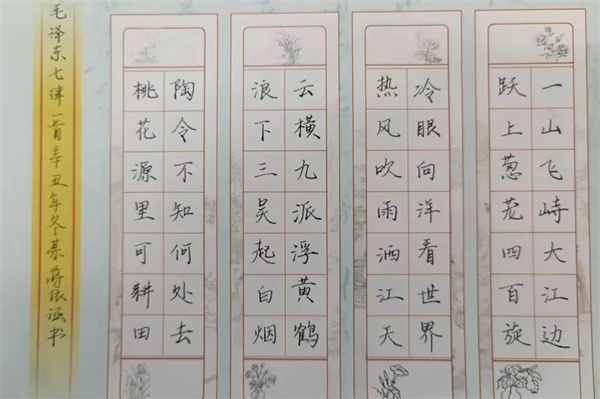 一山飞峙大江边
跃上葱茏四百旋
冷眼向洋看世界
热风吹雨洒江天
云横九派浮黄鹤
浪下三吴起白烟
陶令不知何处去
桃花源里可耕田
毛泽东七律一首辛丑年冬某蒋依涵书